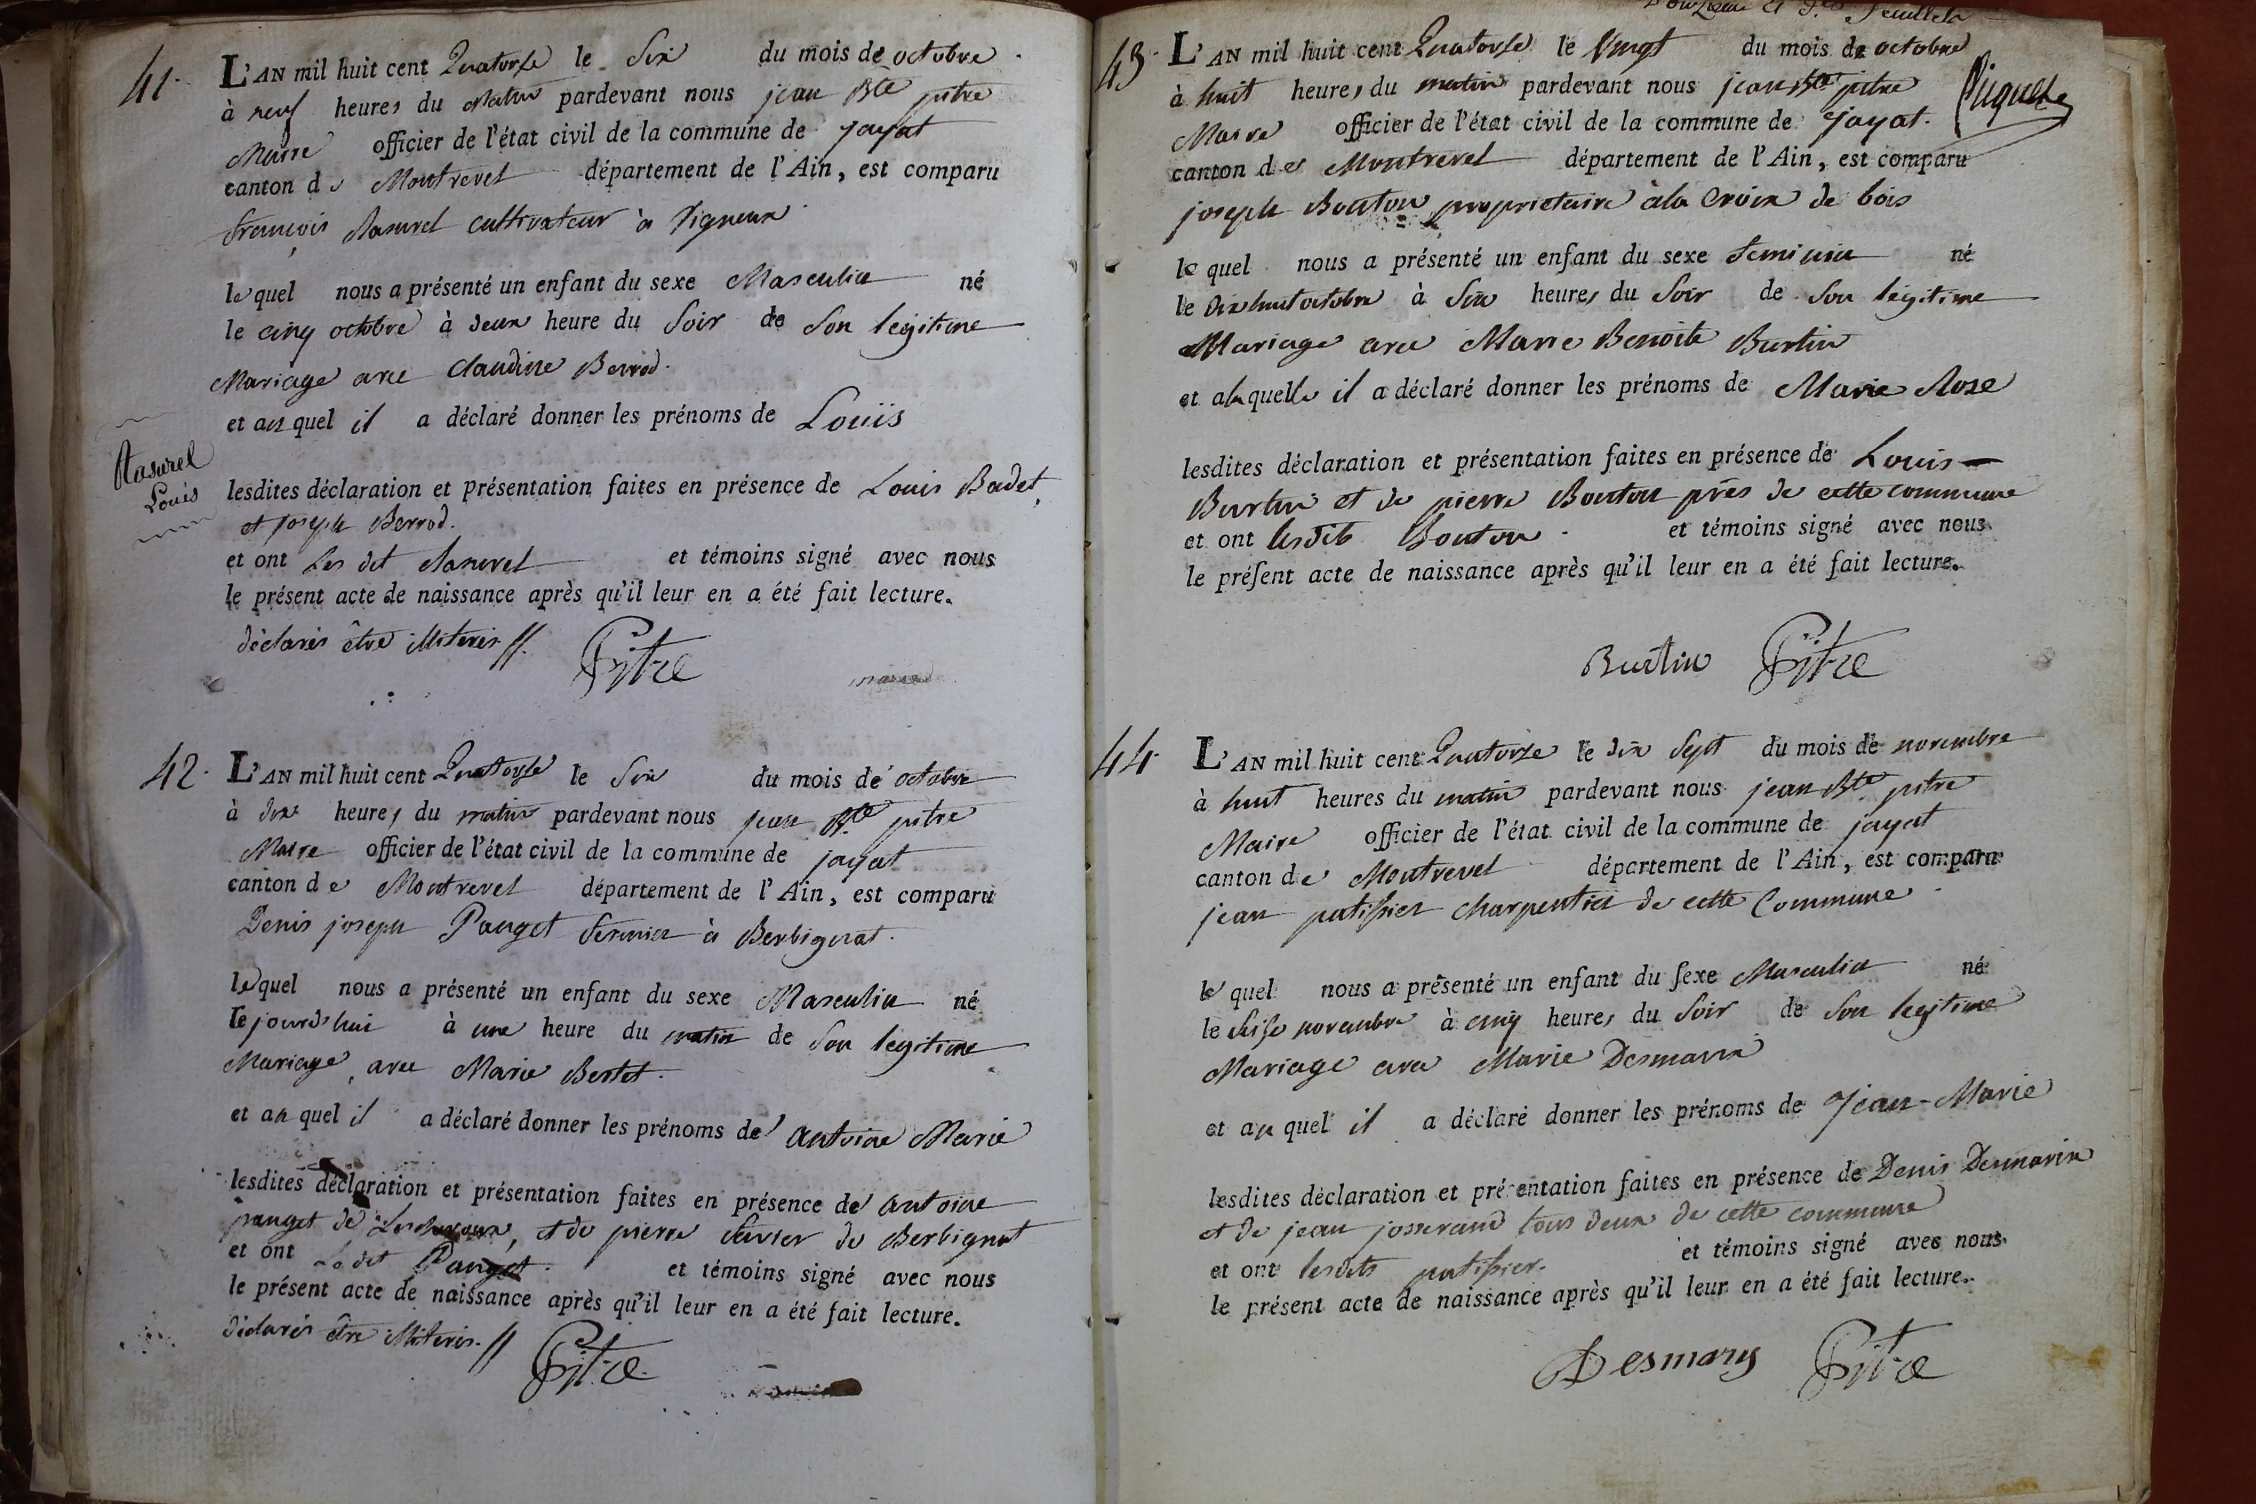 41.
L'AN mil huit cent Quatorse le Six du mois de octobre
à neuf heures du matin pardevant nous jean Bte pitre
Maire officier de l'état civil de la commune de jayat
canton de Montrevel département de l'Ain, est comparu
françois Rasurel cultivateur à Vigneux
lequel nous a présenté un enfant du sexe Masculin né
le cinq octobre à deux heure du Soir de Son legitime
Mariage avec Claudine Berrod.
et au quel il a déclaré donner les prénoms de Louis
Rasurel
Louis
lesdites déclaration et présentation faites en présence de Louis Badet,
et joseph Berrod.
et ont Les dit Rasurel et témoins signé avec nous
le présent acte de naissance après qu'il leur en a été fait lecture.
déclarés être illiteris //. Pitre
42.
L'AN mil huit cent Quatorse le Six du mois de octobre
à dix heures du matin pardevant nous jean Bte pitre
Maire officier de l'état civil de la commune de jayat
canton de Montrevel département de l'Ain, est comparu
Denis joseph Pauget fermier à Berbignat.
lequel nous a présenté un enfant du sexe Masculin né
le jourd'hui à une heure du matin de Son legitime
Mariage, avec Marie Bertet.
et au quel il a déclaré donner les prénoms de Antoine Marie
lesdites déclaration et présentation faites en présence de Antoine
pauget de, et de pierre de Berbignat
et ont Ledit Pauget. et témoins signé avec nous
le présent acte de naissance après qu'il leur en a été fait lecture.
déclarés être illiteris. // Pitre.
feuillet
Piquet
43.
L'AN mil huit cent Quatorse le Vingt du mois de octobre
à huit heures du matin pardevant nous jean Bte pitre
Maire officier de l'état civil de la commune de jayat.
canton de Montrevel département de l'Ain, est comparu
joseph Bouton proprietaire à la Croix de bois
le quel nous a présenté un enfant du sexe feminin né
le dix huit octobre à Six heures du Soir de Son legitime
Mariage avec Marie Benoite Burtin
et a laquelle il a déclaré donner les prénoms de Marie Rose
lesdites déclaration et présentation faites en présence de Louis
Burtin et de pierre Bouton près de cette commune
et ont lesdits Bouton. et témoins signé avec nous
le présent acte de naissance après qu'il leur en a été fait lecture.
Burtin Pitre
44.
L'AN mil huit cent Quatorze le dix Sept du mois de novembre
à huit heures du matin pardevant nous jean Bte pitre
Maire officier de l'état civil de la commune de jayat
canton de Montrevel département de l'Ain, est comparu
jean patissier charpentier de cette Commune.
le quel nous a présenté un enfant du sexe Masculin né
le seise novembre à cinq heures du Soir de Son legitime
Mariage avec Marie Desmaris
et au quel il a déclaré donner les prénoms de Jean-Marie
lesdites déclaration et présentation faites en présence de Denis Desmaris
et de jean josserand tous deux de cette commune
et ont lesdits patissier. et témoins signé avec nous
le présent acte de naissance après qu'il leur en a été fait lecture.
Desmarys Pitre